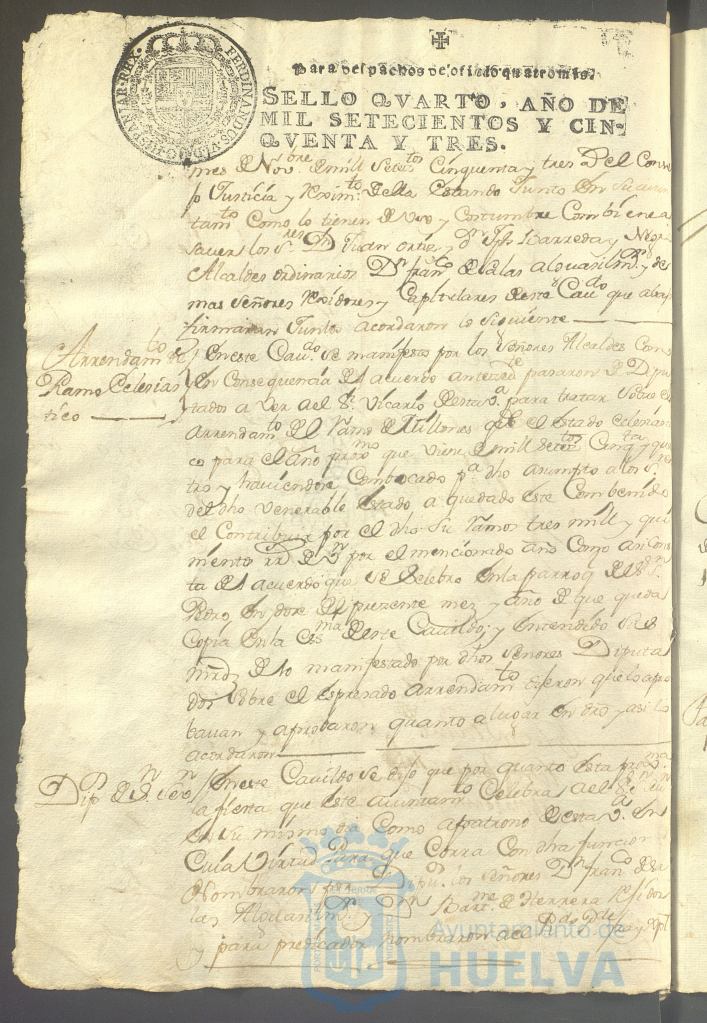 Para despachos de oficio quatro mrs.
SELLO QVARTO, AÑO DE
MIL SETECIENTOS Y CIN-
QVENTA Y TRES.
mes de Nove. de mill setetos Cinquenta y tres del Conse
jo Justicia y Reximto. della estando Junto en su aiun
tamto como lo tienen de uso y costumbre combiene a
saver los Sres Dn Juan Ortiz, y Dn Barreda y Negra
Alcaldes ordinarios Dn franco de
mas señores Rexidores y Capitulares deste Cavdo que abajo
firmaran Juntos acordaron lo siguiente
Arrendamto de
Ramo Eclesias
tico
En este Cavdo se manifesto por los señores Alcaldes Como
en Consequencia del acuerdo antezte pasaron de Dipu
tados a ver al Sr. Vicario desta Va para tratar sobre el
Arrendamto del Ramo de Millones del estado eclesiasti
co para el año proxmo que viene de mill setetos Cinqta y qua
tro y haviendose Combocado pa dho asumpto a los Sres
de dho Venerable Estado, a quedado este Combenido
el Contribuir por el dho su Ramo tres mill y qui
nientos rr de Vn por el mencionado año Como asi Cons
ta del acuerdo que se Selebro en la Parroqa del Sr Sn
Pedro en dose del prezente mez y año de que queda
Copia en la esma de este Cavildo; y entendido sus
mrdz de lo manifestado por dhos señores Diputa
dos sobre el espresado arrendamto dijeron que lo apro
bavan y aprobaron quanto a lugar en dro y asi lo
acordaron
Dipn de Sn Sevn
En este Cavildo se dijo que por quanto esta proxma
la fiesta que este ayuntamto Celebra al Sr Sn
en su mismo dia Como a patrono desta Va. en
Cuia Virtud para que Corra Con dha funcion
Nombraron por Dipu. los señores Dn franco de sa
las y Dn Barme de Herrera Rexidores
y para predicador nombraron al
Ayuntamiento de
HUELVA